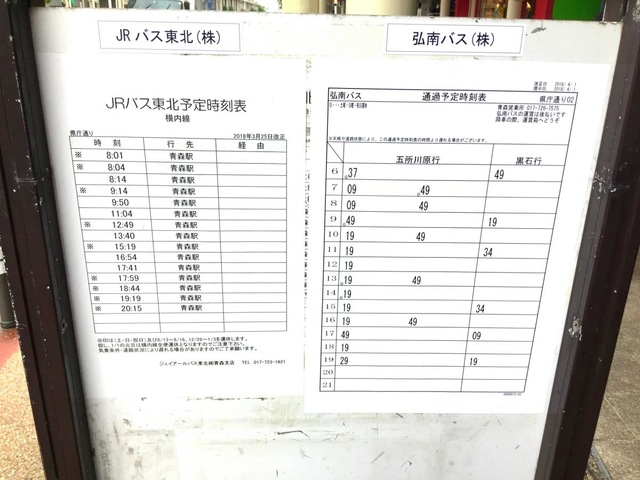 JRバス東北(株)
弘南バス(株)
JRバス東北予定時刻表
横内線
県庁通り 2018年3月25日改正
時刻 行先 経由
※ 8:01 青森駅
※ 8:04 青森駅
8:14 青森駅
※ 9:14 青森駅
9:50 青森駅
11:04 青森駅
※ 12:49 青森駅
13:40 青森駅
※ 15:19 青森駅
16:54 青森駅
17:41 青森駅
※ 17:59 青森駅
※ 18:44 青森駅
※ 19:19 青森駅
※ 20:15 青森駅
※印は(土・日・祝日)及び8/13~8/16、12/29~1/3を運休します。
但し、1/1の元日は横内線全便運休となりますのでご注意下さい。
気象条件・道路状況により遅れる場合がありますのでご了承願います。
ジェイアールバス東北㈱青森支店 TEL 017-723-1621
改正日 2018/ 4/ 1
掲示日 2018/ 4/ 1
弘南バス 通過予定時刻表 県庁通り02
青森営業所 017-726-7575
弘南バスの運賃は後払いです
降車の際、運賃箱へどうぞ
※天候や道路状態により、この通過予定時刻表の時間より遅れる場合がございます。
五所川原行 黒石行
6 。37 49
7 09 。49
8 09 49
9 。49 19
10 19 49
11 19 34
12 19
13 。19 49
14 。19
15 19 34
16 19 49
17 49 09
18 19
19 29 19
20
21